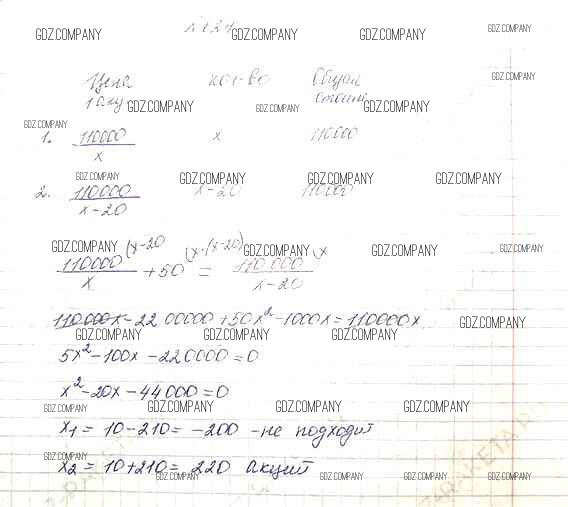 GDZ.COMPANY GDZ.COMPANY GDZ.COMPANY GDZ.COMPANY
Цена кол-во Общая GDZ.COMPANY
1 акц GDZ.COMPANY GDZ.COMPANY стоим. GDZ.COMPANY
GDZ.COMPANY
1. 110000/x x 110000
GDZ.COMPANY GDZ.COMPANY GDZ.COMPANY GDZ.COMPANY
2. 110000/x-20 x-20 110000
GDZ.COMPANY (x-20 (x·(x-20) GDZ.COMPANY (x GDZ.COMPANY GDZ.COMPANY
110000/x + 50 = 110 000/x-20
110000x - 22 00000 + 50x² - 1000x = 110000x GDZ.COMPANY
GDZ.COMPANY GDZ.COMPANY GDZ.COMPANY
5x² - 100x - 220000 = 0
x² - 20x - 44000 = 0
GDZ.COMPANY GDZ.COMPANY GDZ.COMPANY GDZ.COMPANY
x₁ = 10 - 210 = -200 - не подходит
GDZ.COMPANY
x₂ = 10 + 210 = 220 акций
GDZ.COMPANY GDZ.COMPANY GDZ.COMPANY GDZ.COMPANY